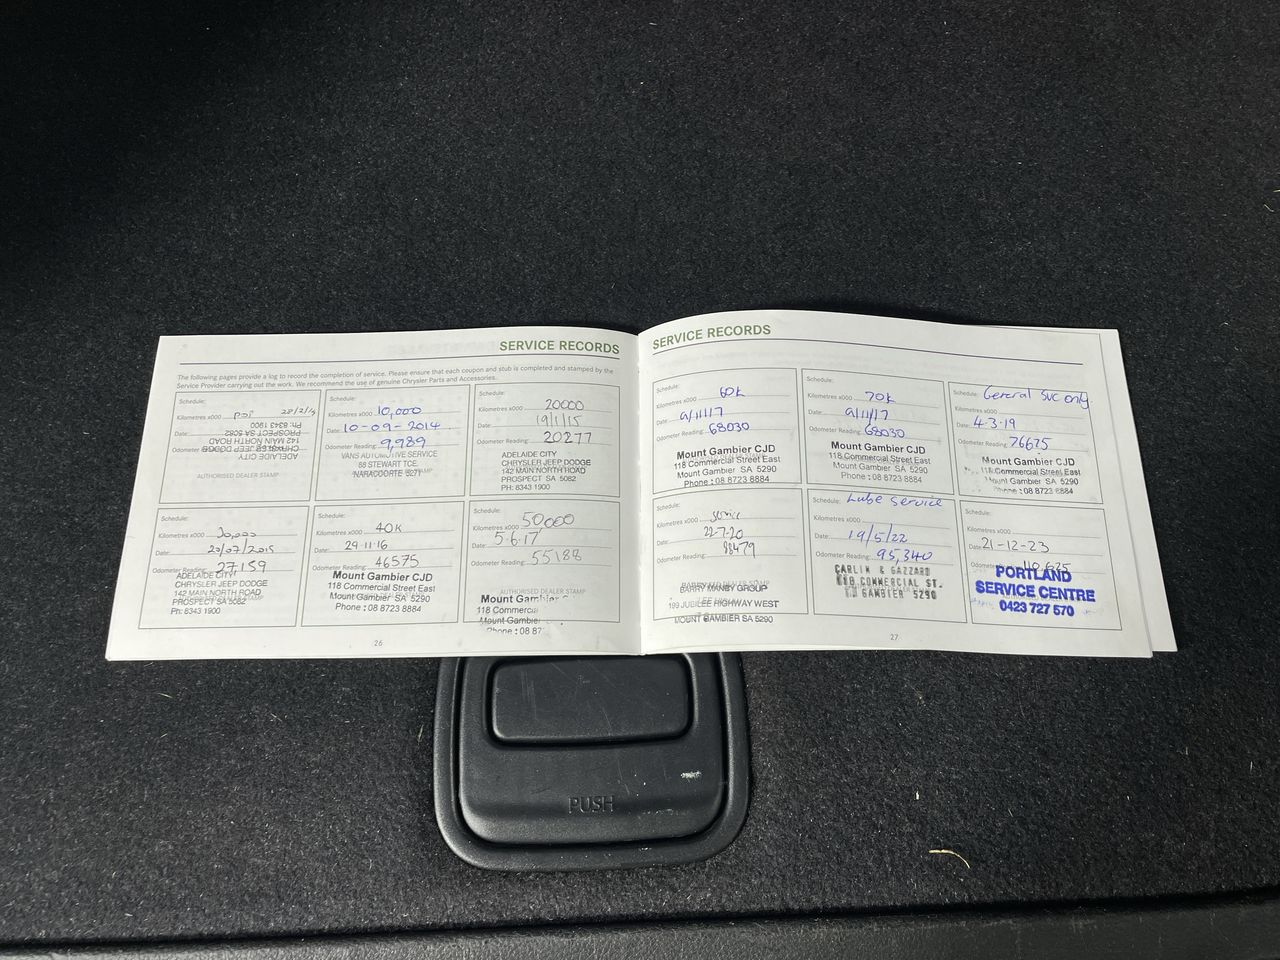 SERVICE RECORDS
The following pages provide a log to record the completion of service. Please ensure that each coupon and stub is completed and stamped by the
Service Provider carrying out the work. We recommend the use of genuine Chrysler Parts and Accessories.
Schedule:
Kilometres x000 PDI 28/2/14
Date:
Odometer Reading:
ADELAIDE CITY
CHRYSLER JEEP DODGE
142 MAIN NORTH ROAD
PROSPECT SA 5082
Ph: 8343 1900
AUTHORISED DEALER STAMP
Schedule:
Kilometres x000 10,000
Date: 10-09-2014
Odometer Reading: 9,989
VANS AUTOMOTIVE SERVICE
88 STEWART TCE.
NARACOORTE 5271
Schedule:
Kilometres x000 20000
Date: 19/1/15
Odometer Reading: 20277
ADELAIDE CITY
CHRYSLER JEEP DODGE
142 MAIN NORTH ROAD
PROSPECT SA 5082
PH: 8343 1900
Schedule:
Kilometres x000 30,000
Date: 20/07/2015
Odometer Reading: 27159
ADELAIDE CITY
CHRYSLER JEEP DODGE
142 MAIN NORTH ROAD
PROSPECT SA 5082
Ph: 8343 1900
Schedule:
Kilometres x000 40K
Date: 29-11-16
Odometer Reading: 46575
Mount Gambier CJD
118 Commercial Street East
Mount Gambier SA 5290
Phone : 08 8723 8884
Schedule:
Kilometres x000 50000
Date: 5-6-17
Odometer Reading: 55188
AUTHORISED DEALER STAMP
Mount Gambier C
118 Commercial
Mount Gambier
Phone : 08 87
26
SERVICE RECORDS
Schedule:
Kilometres x000 60K
Date: 9/11/17
Odometer Reading: 68030
Mount Gambier CJD
118 Commercial Street East
Mount Gambier SA 5290
Phone : 08 8723 8884
Schedule:
Kilometres x000 70K
Date: 9/11/17
Odometer Reading: 68030
Mount Gambier CJD
118 Commercial Street East
Mount Gambier SA 5290
Phone : 08 8723 8884
Schedule: General Svc only.
Kilometres x000
Date: 4-3-19
Odometer Reading: 76675
Mount Gambier CJD
118 Commercial Street East
Mount Gambier SA 5290
Phone : 08 8723 8884
Schedule:
Kilometres x000 Service
Date: 22-7-20
Odometer Reading: 88479
BARRY MANBY GROUP
199 JUBILEE HIGHWAY WEST
MOUNT GAMBIER SA 5290
Schedule: Lube Service
Kilometres x000
Date: 19/5/22
Odometer Reading: 95,340
CARLIN & GAZZARD
118 COMMERCIAL ST.
GAMBIER 5290
Schedule:
Kilometres x000
Date: 21-12-23
Odometer Reading: 110,625
PORTLAND
SERVICE CENTRE
0423 727 570
27
PUSH